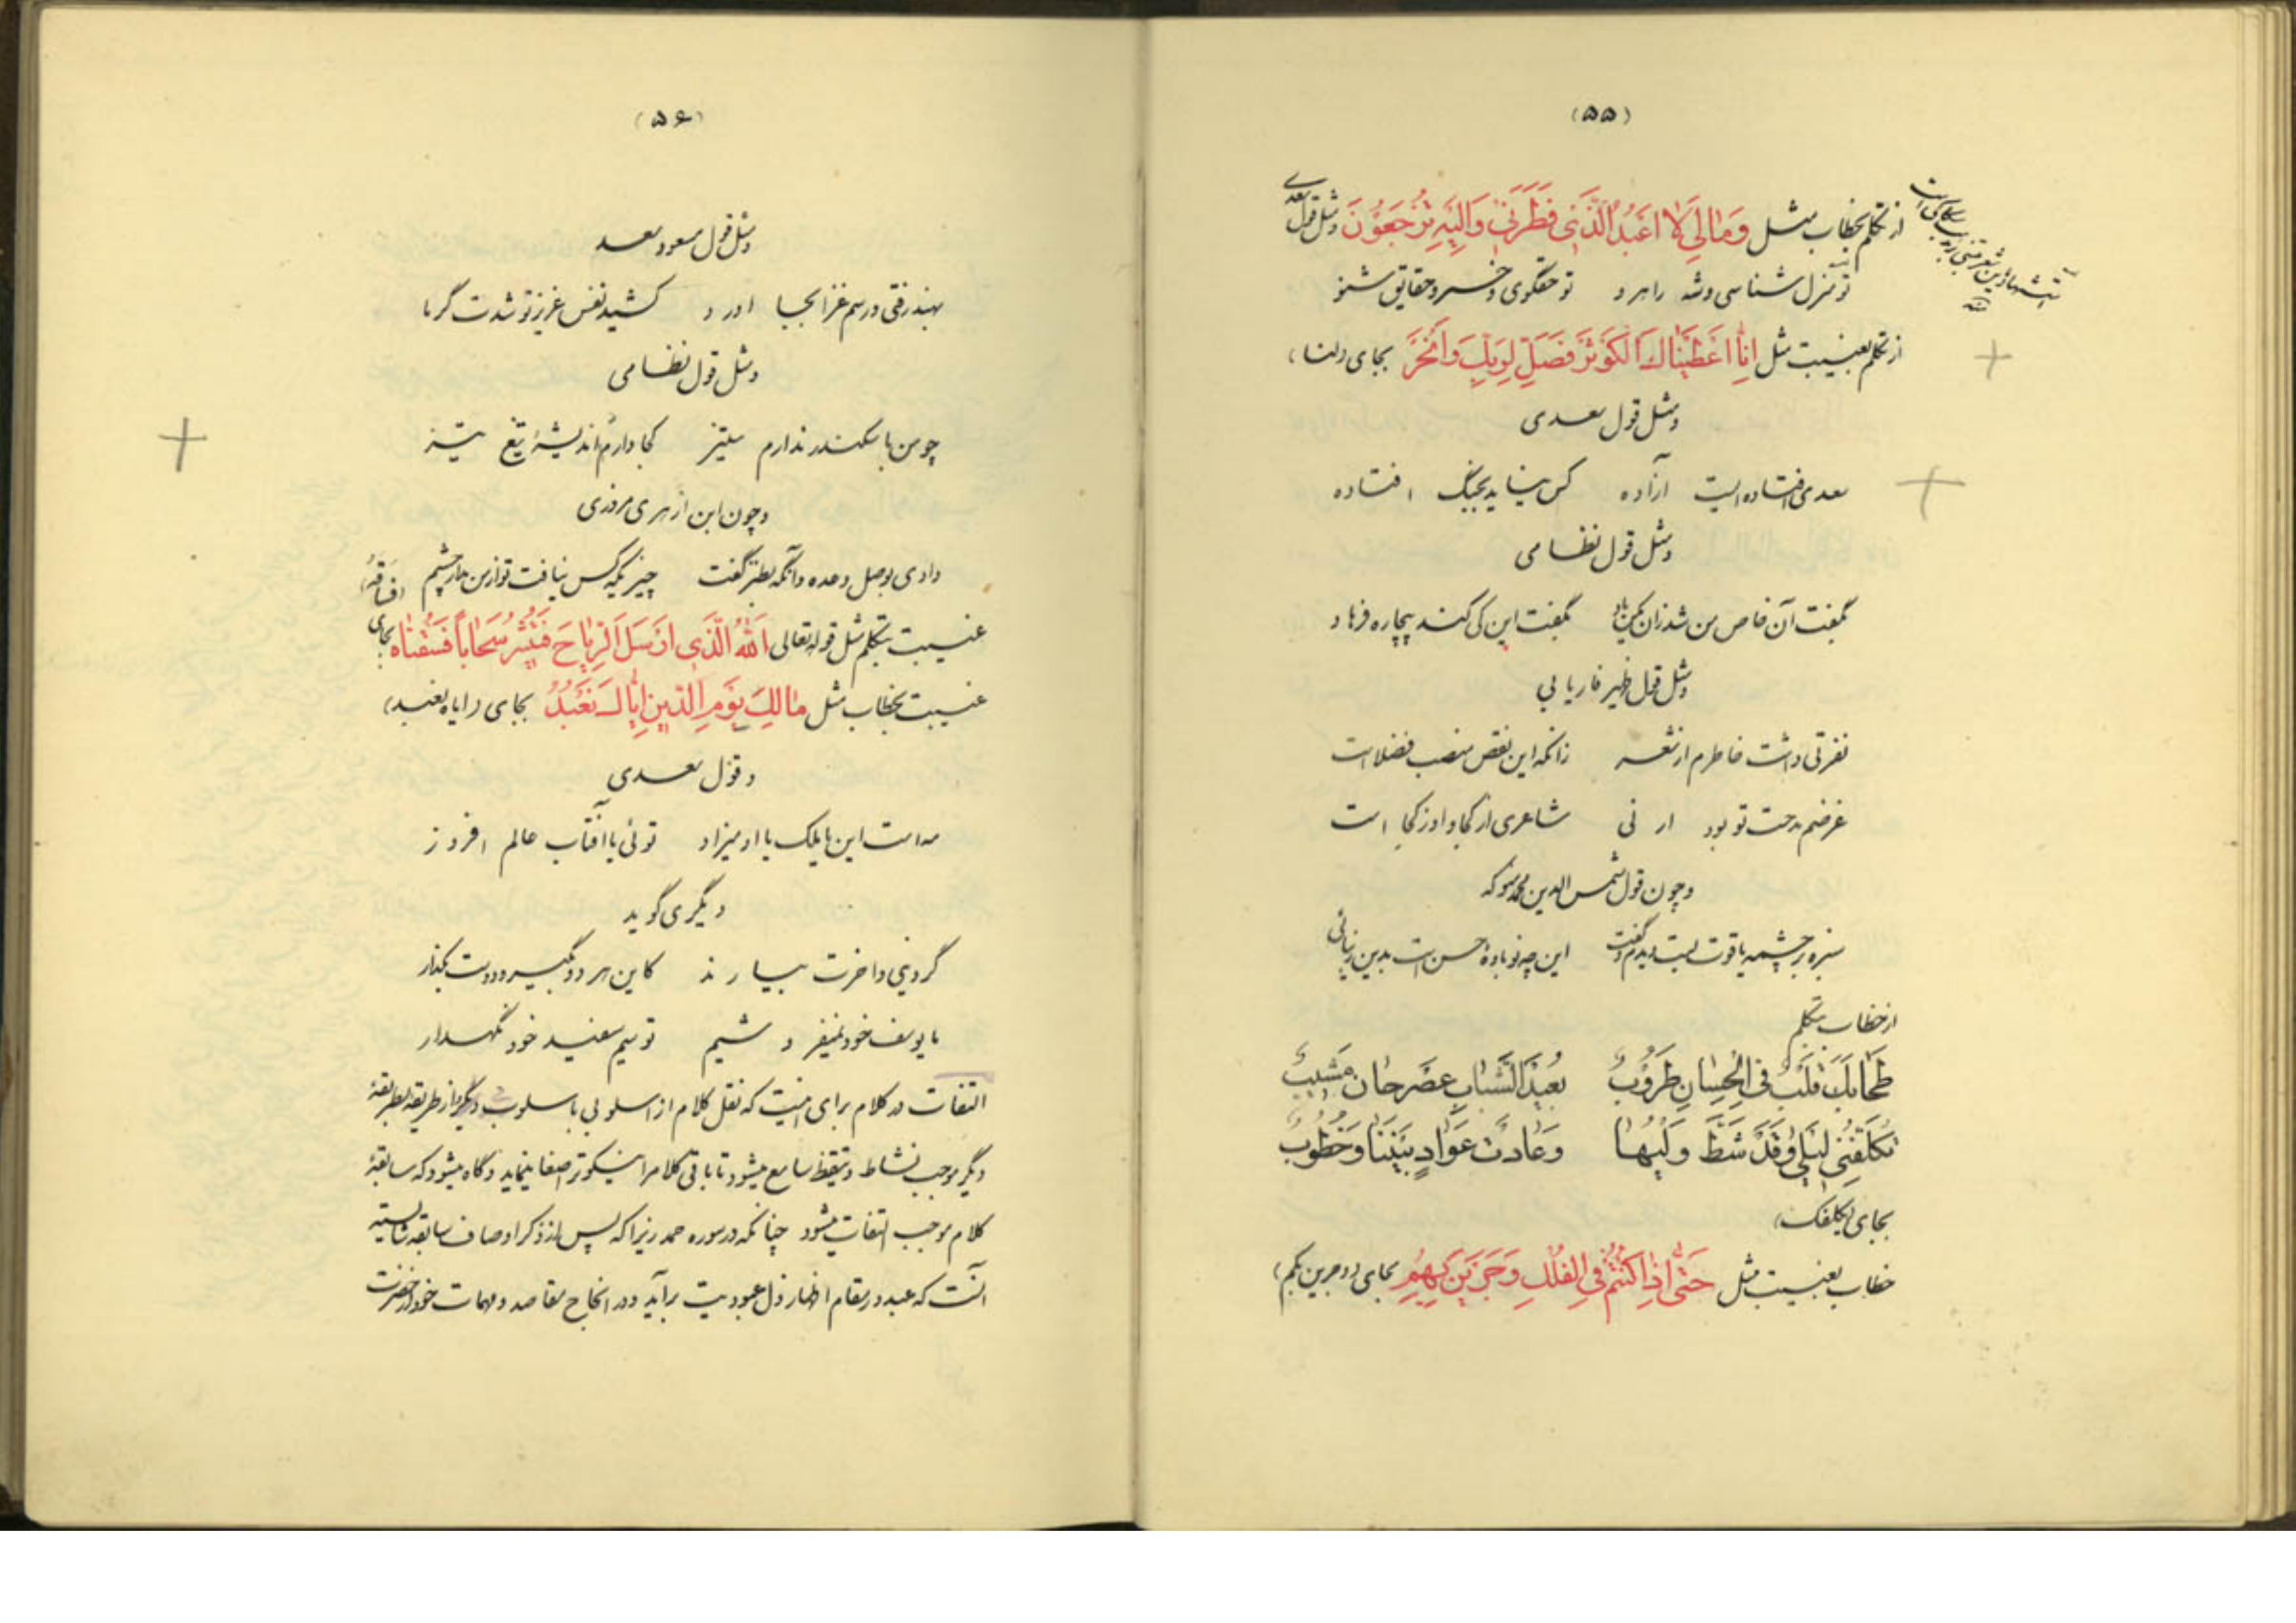 (۵۵)
از تکلم بخطاب مثل وَمَالِیَ لَا اَعْبُدُ الَّذی فَطَرَنی وَاِلَیْهِ تُرْجَعُونَ ومثل قول سعدی
تو منزل شناسی وشه راهرو تو حقگوی وخسرو حقایق شنو
از تکلم بغیبت مثل اِنَّا اَعْطَیْنَاكَ الْکَوْثَرَ فَصَلِّ لِرَبِّكَ وَانْحَرْ بجای (لنا)
ومثل قول سعدی
سعدی افتاده ایست آزاده کس نیاید بجنگ افتاده
ومثل قول نظامی
بگفت آن خاص من شد زان مکن یاد بگفت این کی کند بیچاره فرهاد
ومثل قول ظهیر فاریابی
نفرتی داشت خاطرم از شعر زانکه این نقص منصب فضلاست
غرضم مدحت تو بود ار نی شاعری از کجا واو ز کجا است
وچون قول شمس الدین محمد
سبزه بر چشمه یاقوت لبت دیدم وگفت این چه نوباوهٔ حسن است بدین زیبائی
از خطاب بتکلم
طَحَابِكَ قَلْبٌ فِی الْحِسَانِ طَرُوبُ بُعَیْدَ الشَّبَابِ عَصْرَ حَانَ مَشیبُ
تُکَلِّفُنی لَیْلی وَقَدْ شَطَّ وَلْیُهَا وَعَادَتْ عَوَادٍ بَیْنَنَا وَخُطُوبُ
بجای (یکلفك)
خطاب بغیبت مثل حَتّی اِذَا کُنْتُمْ فِی الْفُلْكِ وَجَرَیْنَ بِهِمْ بجای (وجرین بکم)
(۵۶)
ومثل قول مسعود سعد
بهند رفتی ورسم غزا بجا آورد کشید نفس عزیز تو شدت گرما
ومثل قول نظامی
چو من با سکندر ندارم ستیز کجا دارم اندیشهٔ تیغ تیز
وچون ابن ازهری مروزی
دادی بوصل وعده وآنگه بطنز گفت چیزیکه کس نیافت تو از من مدار چشم
غیبت بتکلم مثل قوله تعالی اَللهُ الَّذی اَرْسَلَ الرِّیَاحَ فَتُثیرُ سَحَاباً فَسُقْنَاهُ بجای (فساقه)
غیبت بخطاب مثل مَالِكِ یَوْمِ الدّینِ اِیَّاكَ نَعْبُدُ بجای (ایاه نعبد)
وقول سعدی
مه است این یا ملك یا آدمیزاد توئی یا آفتاب عالم افروز
دیگری گوید
گر دنیی وآخرت بیارند کاین هر دو بگیر ودوست بگذار
ما یوسف خود نمیفروشیم تو سیم سفید خود نگهدار
التفات در کلام برای اینست که نقل کلام از اسلوبی باسلوب دیگر واز طریقه بطریقهٔ
دیگر موجب نشاط وتیقظ سامع میشود تا باقی کلامرا نیکوتر اصغا نماید وگاه میشود که سابقهٔ
کلام موجب التفات میشود چنانکه در سوره حمد زیرا که پس از ذکر اوصاف سابقه شایسته
آنست که عبد در مقام اظهار ذل عبودیت برآید ودر انجاح مقاصد ومهمات خود از حضرت